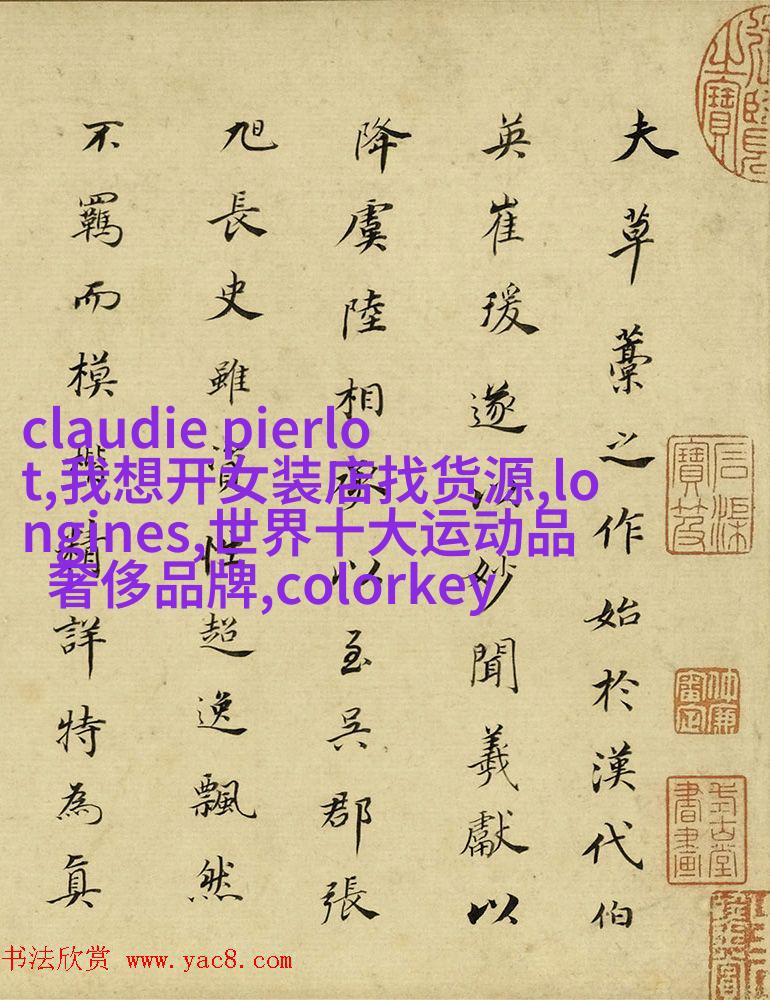 夫草藁之作始於漢代伯
英崔瑗遂以妙聞羲獻以
降虞陸相承以至吳郡張
旭長史雖資性超逸飄然
不羈而模楷精詳特為真
claudie pierlo
t,我想开女装店找货源,lo
ngines,世界十大运动品
奢侈品牌,colorkey
书法欣赏 www.yac8.com